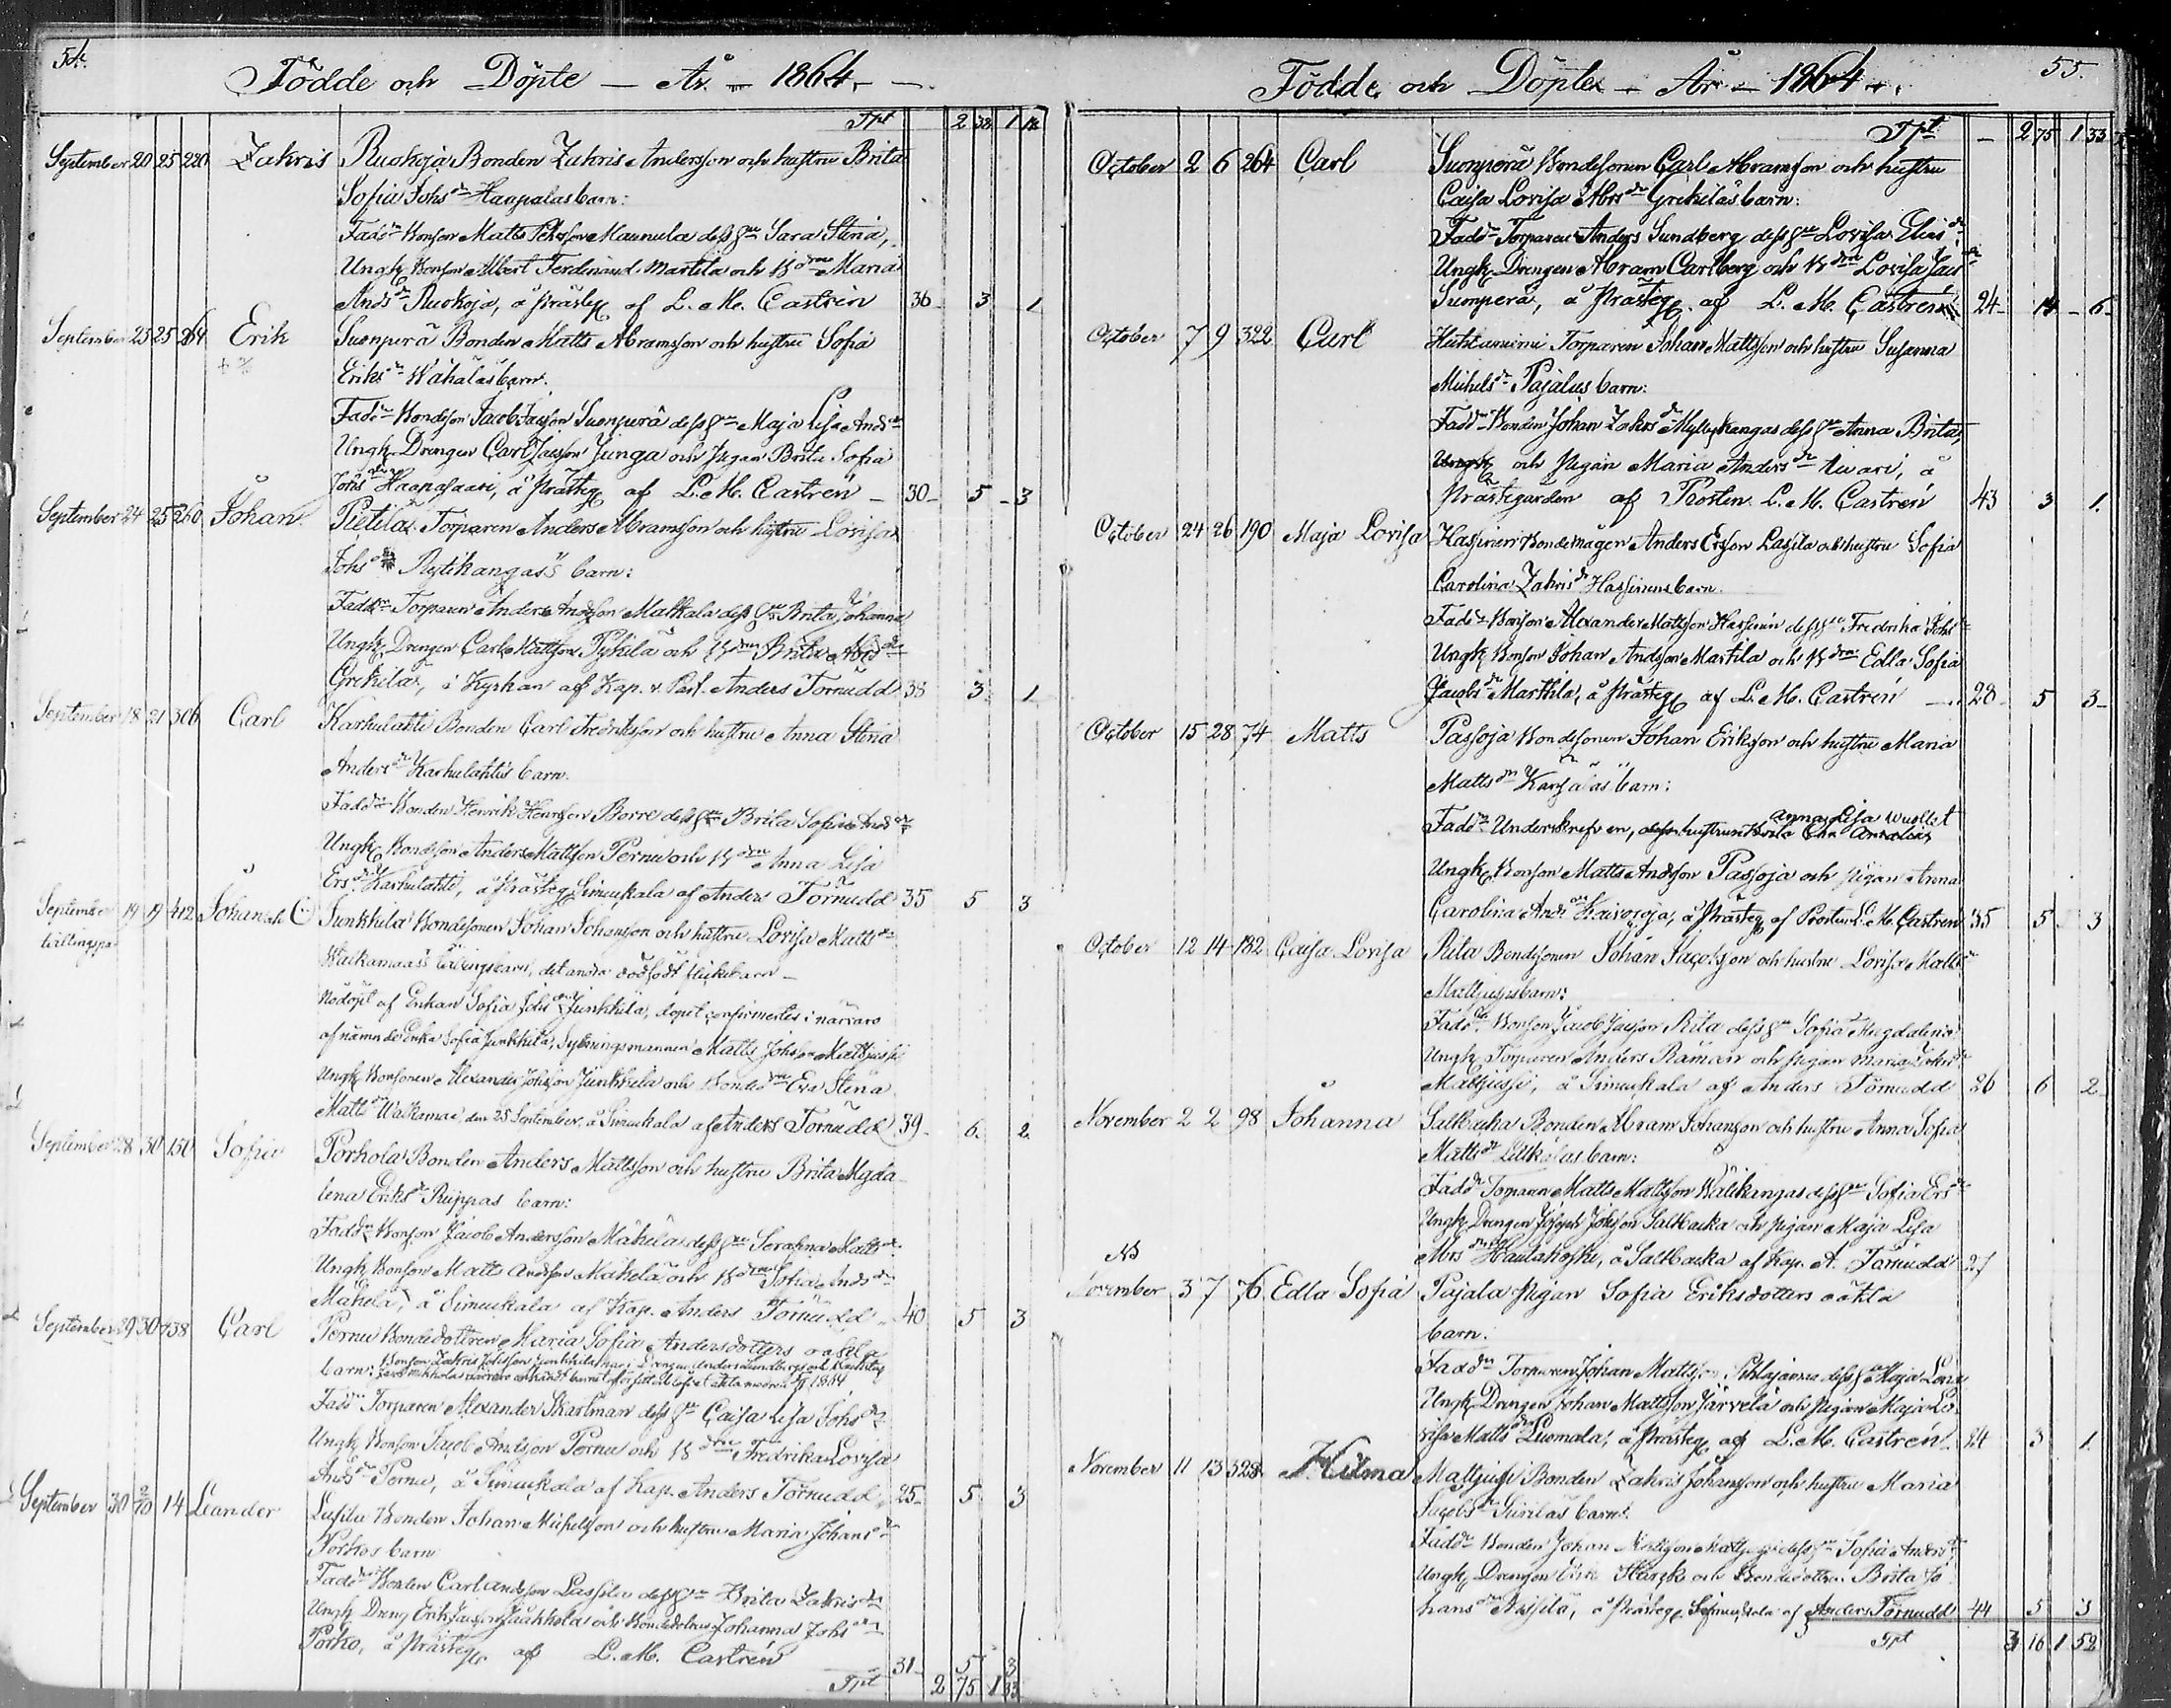 54.
Födde och Döpte — År — 1864.
Tpt 2 38 1 18
September 20 25 220 Zakris Ruokoja Bonden Zakris Andersson och hustru Brita
Sofia Johs dr Haapalas barn:
Fadd: Bonson Matts Petersson Maunula dess hu Sara Stina,
Ungk. Bonson Albert Ferdinand Martila och B drn Maria
Ands dr Ruokoja, å Prästeg. af L. M. Castrén 36 3 1
September 23 25 264 Erik Suonperä Bonden Matts Abramsson och hustru Sofia
Eriks dr Wähäläs barn:
Fadd: Bondson Jacob Jacsson Suonperä dess hu Maja Lisa Ands dr
Ungk. Drengen Carl Jacsson Junga och Pigan Brita Sofia
Johs dr Haapasaari, å Prästeg. af L. M. Castrén 30 5 3
September 24 25 260 Johan Pietilä Torparen Anders Abramsson och hustru Lovisa
Johs dr Rytikangas's barn:
Fadd: Torparen Anders Andsson Matkala dess hu Brita Johanna
Ungk. Drengen Carl Mattsson Pyhilä och B drn Brita Abrs dr
Grekilä, i Kyrkan af Kap. v. Past. Anders Törnudd 38 3 1
September 18 21 306 Carl Karhulahti Bonden Carl Fredriksson och hustru Anna Stina
Anders dr Karhulahtis barn.
Fadd: Bonden Henrik Henrsson Borre dess hu Brita Sofia Ands dr
Ungk. Bondson Anders Mattsson Pernu och B drn Anna Lisa
Ers dr Karhulahti, å Prästeg. Simukkala af Anders Törnudd 35 5 3
September 19 19 412 Johan och Junkkila Bondesonen Johan Johansson och hustru Lovisa Matts dr
tvillingspar Waikamaas's tvillingsbarn, det andra dödfödt flickebarn —
Nödöpt af Enkan Sofia Johs dr Junkkila, dopet confirmerades i närvaro
af nämnde Enka Sofia Junkkila, Sytningsmannen Matts Johsson Mattjussi
Ungk. Bonsonen Alexander Johsson Junkkila och Bonde drn Eva Stina
Matts dr Waikamaa, den 25 September, å Simukkala af Anders Törnudd 39 6 2
September 28 30 150 Sofia Porhola Bonden Anders Mattsson och hustru Brita Magda-
lena Eriks dr Ruippas barn:
Fadd: Bonson Jacob Andersson Mäkelä dess hu Serafina Matts dr
Ungk. Bonson Matts Andsson Mäkelä och B drn Sofia Ands dr
Mäkelä, å Simukkala af Kap. Anders Törnudd 40 5 3
September 29 30 738 Carl Pernu Bondedottren Maria Sofia Andersdotters oäkta
barn:
Fadd: Torparen Alexander Skarlman dess hu Caisa Lisa Johs dr
Ungk. Bonson Jacob Andsson Pernu och B drn Fredrika Lovisa
Ands dr Pernu, å Simukkala af Kap. Anders Törnudd 25 5 3
September 30 2/10 14 Leander Lusila Bonden Johan Michelsson och hustru Maria Johans dr
Porkos barn
Fadd: Bonden Carl Andsson Lassila dess hu Brita Zakris dr
Ungk. Dreng Erik Jacsson Jaakkola och Bondedottren Johanna Johs dr
Porko, å Prästeg. af L. M. Castrén 31 5 3
Tpt 2 75 1 33
55.
Födde och Döpte — År — 1864.
Tpt — 2 75 1 33
October 2 6 264 Carl Suonperä Bondesonen Carl Abramsson och hustru
Caisa Lovisa Abrs dr Grekiläs barn:
Fadd: Torparen Anders Sundberg dess hu Lovisa Elias dr
Ungk. Drengen Abram Carlberg och B drn Lovisa Jacs dr
Suonperä, å Prästeg. af L. M. Castrén 24 14 6
October 7 9 322 Carl Huhtaniemi Torparen Johan Mattsson och hustru Susanna
Michels dr Pajalas barn:
Fadd: Bonden Johan Zakrs Myllykangas dess hu Anna Brita,
och Pigan Maria Anders dr Tuari, å
Prästgården af Prosten L. M. Castrén 43 3 1
October 24 26 190 Maja Lovisa Hassinen Bondemågen Anders Ersson Lasila och hustru Sofia
Carolina Zakris dr Hassinens barn.
Fadd: Bonson Alexander Mattsson Hassinen dess hu Fredrika Johs dr
Ungk. Bonson Johan Andsson Martila och B drn Edla Sofia
Jacobs dr Marthla, å Prästeg. af L. M. Castrén 28 5 3
October 15 28 74 Matts Passoja Bondesonen Johan Eriksson och hustru Maria
Matts dr Karsaläs barn:
Fadd: Underskrefven, dess hustru Anna Lisa
Ungk. Bonson Matts Andsson Passoja och Pigan Anna
Carolina Ands dr Kaivosoja, å Prästeg. af Prosten L. M. Castrén 35 5 3
October 12 14 182 Caisa Lovisa Rita Bondsonen Johan Jacobsson och hustru Lovisa Matts dr
Mattjussis barn:
Fadd: Bonson Jacob Jacsson Rita dess hu Sofia Magdalena
Ungk. Torparen Anders Rämän och Pigan Maria Johs dr
Mattjussi, å Simukkala af Anders Törnudd 26 6 2
November 2 2 98 Johanna Saltbacka Bonden Abram Johansson och hustru Anna Sofia
Matts dr Lillkåläs barn:
Fadd: Torparen Matts Mattsson Wälikangas dess hu Sofia Ers dr
Ungk. Drengen Joseph Johsson Saltbacka och Pigan Maja Lisa
Abrs dr Hautakoski, å Saltbacka af Kap. A. Törnudd 27
November 3 7 76 Edla Sofia Pajala Pigan Sofia Eriksdotters oäkta
barn.
Fadd: Torparen Johan Mattsson Pihlajamaa dess hu Maja Lena
Ungk. Drengen Johan Mattsson Järvelä och Pigan Maja Lo-
visa Matts dr Luomala, å Prästeg. af L. M. Castrén 24 3 1
November 11 13 328 Hilma Mattjussi Bonden Zakris Johansson och hustru Maria
Jacobs dr Siiriläs barn:
Fadd: Bonden Johan Mattjussi dess hu Sofia Anders dr
Ungk. Drengen Eric Harck och Bondedottren Brita Jo-
hans dr Nissilä, å Prästeg. Simukkala af Anders Törnudd 44 5 3
Tpt 3 16 1 52